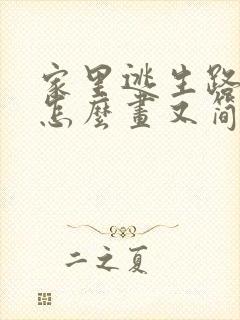 家里逃生路
怎麼畫又简
二之夏